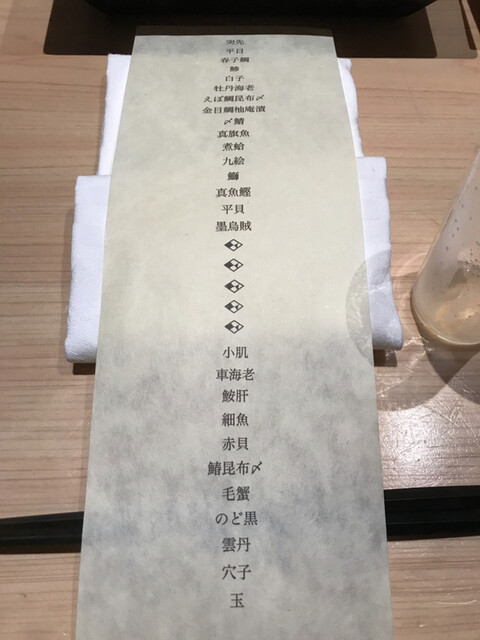 突先
平目
春子鯛
鯵
白子
牡丹海老
えぼ鯛昆布〆
金目鯛柚庵漬
〆鯖
真旗魚
煮蛤
九絵
鰤
真魚鰹
平貝
墨烏賊
小肌
車海老
鮟肝
細魚
赤貝
鰆昆布〆
毛蟹
のど黒
雲丹
穴子
玉